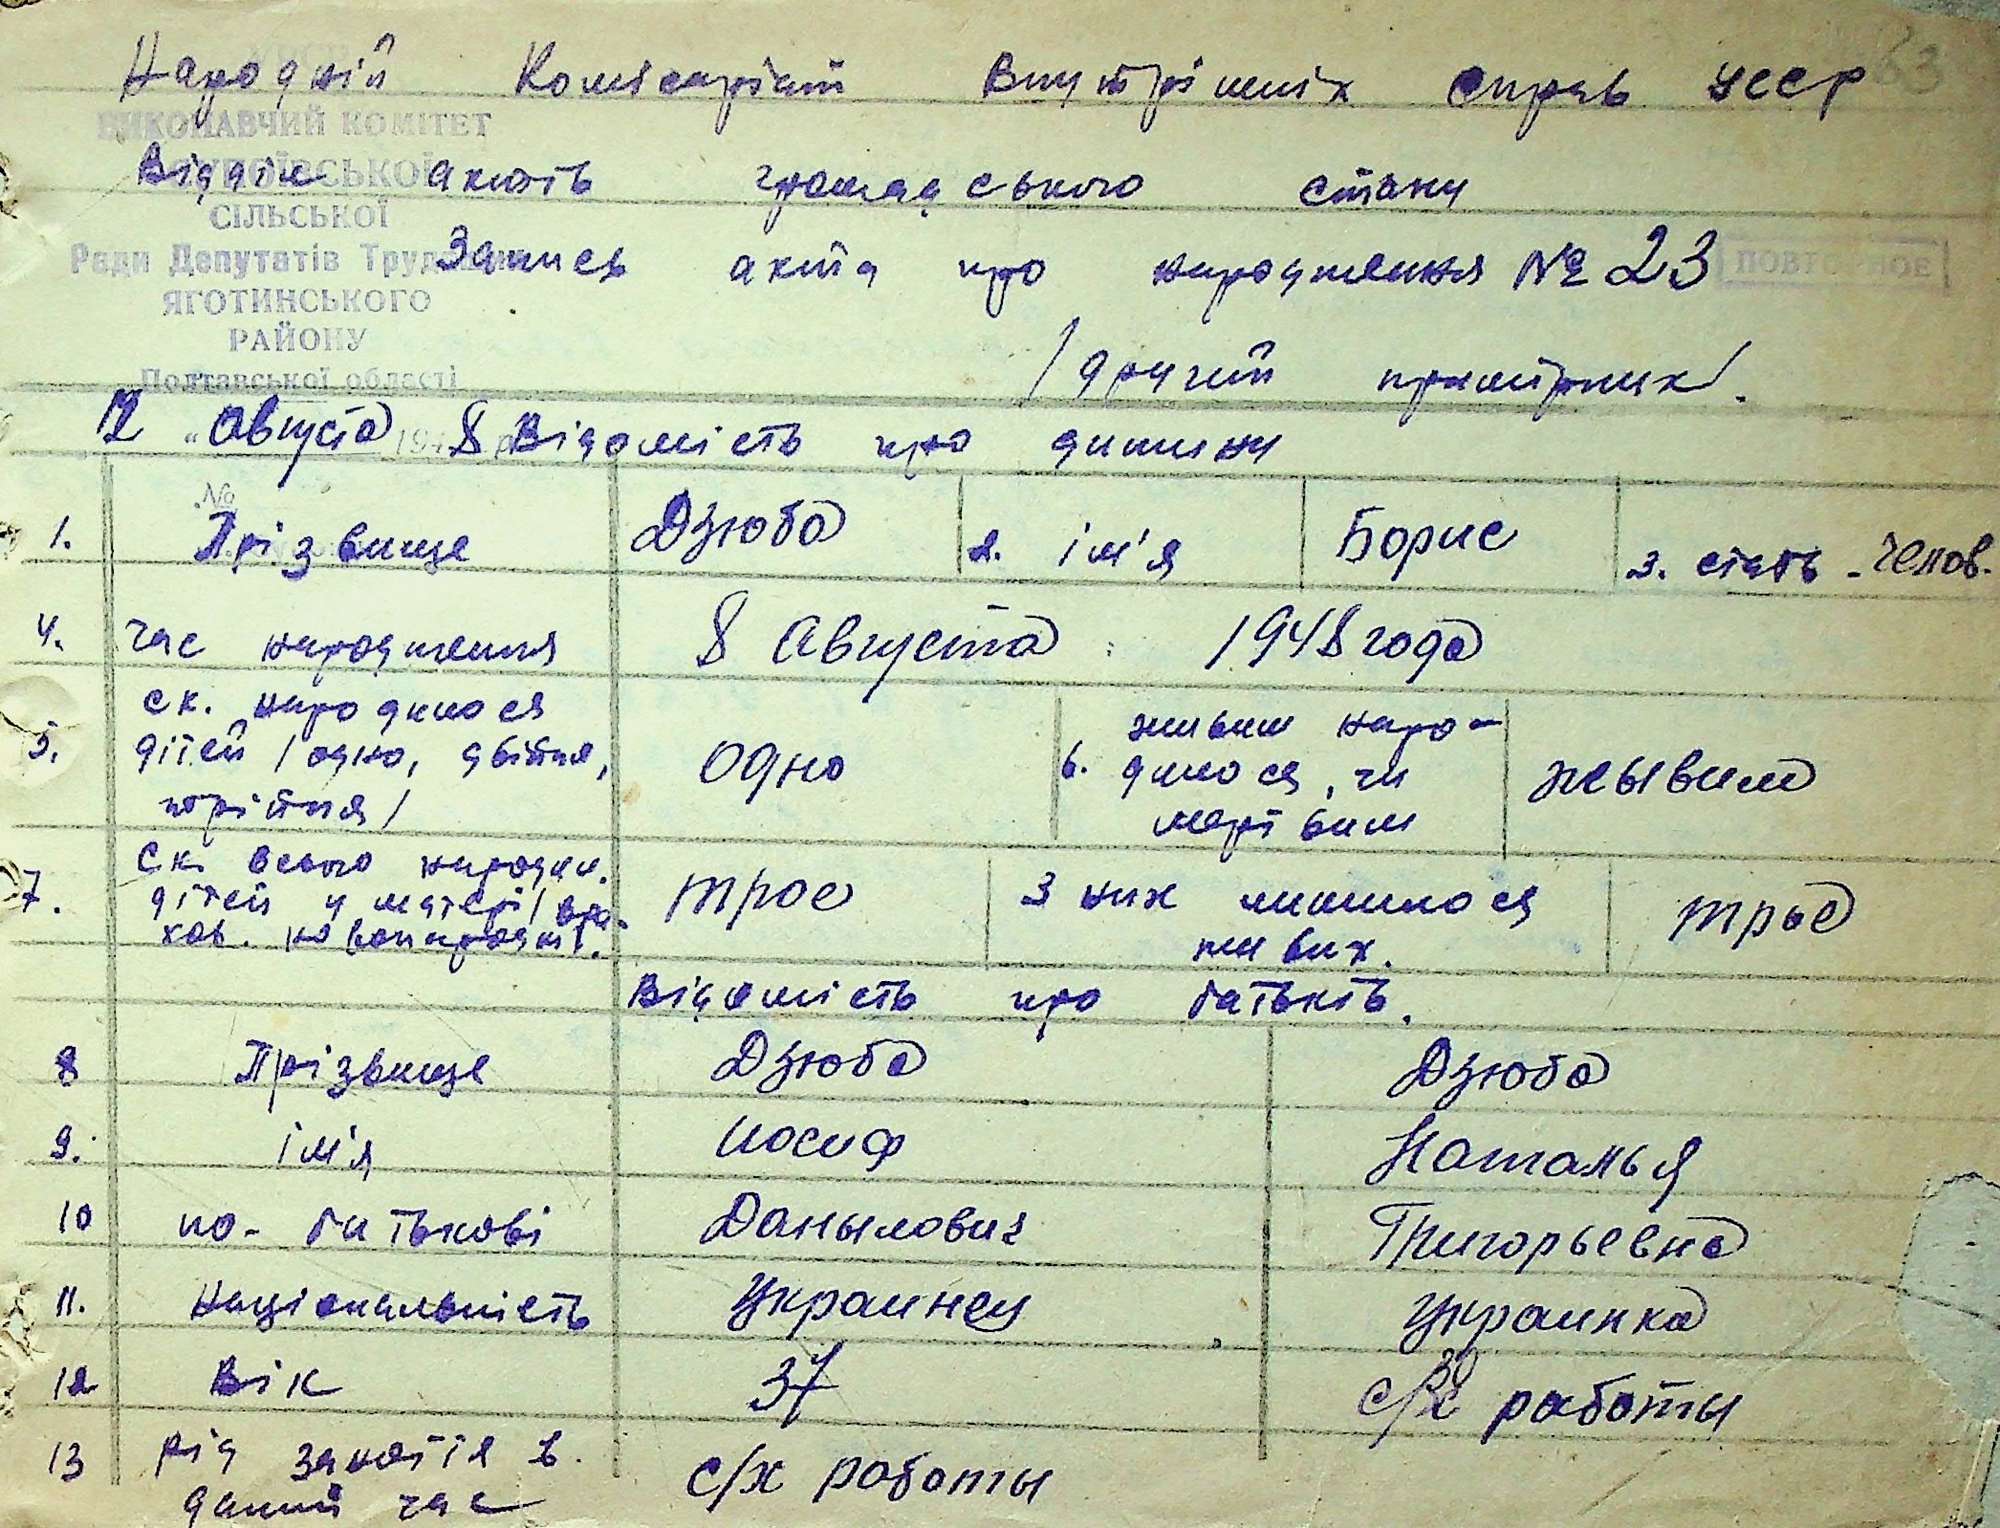 63
Народній Комісаріат Внутрішніх Справ УССР
ВИКОНАВЧИЙ КОМІТЕТ
Відділ актів громадського стану
СІЛЬСЬКОЇ
Запись акта про народження № 23
Ради Депутатів
ПОВТОРНОЕ
ЯГОТИНСЬКОГО
РАЙОНУ
/другий примірник/.
Полтавської області
12 „Августа 1948 р Відомість про дитину
№
1. Прізвище Дзюба 2. ім'я Борис 3. стать - Челов.
4. час народження 8 Августа 1948 года
5. Ск. народилося дітей /одно, двійня, трійня/ одно 6. живим народилося, чи мертвим жывим
7. Ск. всього народж. дітей у матері/врахов. новонародж/. трое З них лишилося живих. трое
Відомість про батьків.
8 Прізвище Дзюба Дзюба
9. ім'я Иосиф Наталья
10 по-батькові Данылович Григорьевна
11. національність Украинец Украинка
12 Вік 37 30
13 рід заняття в даний час с/х работы с/х работы